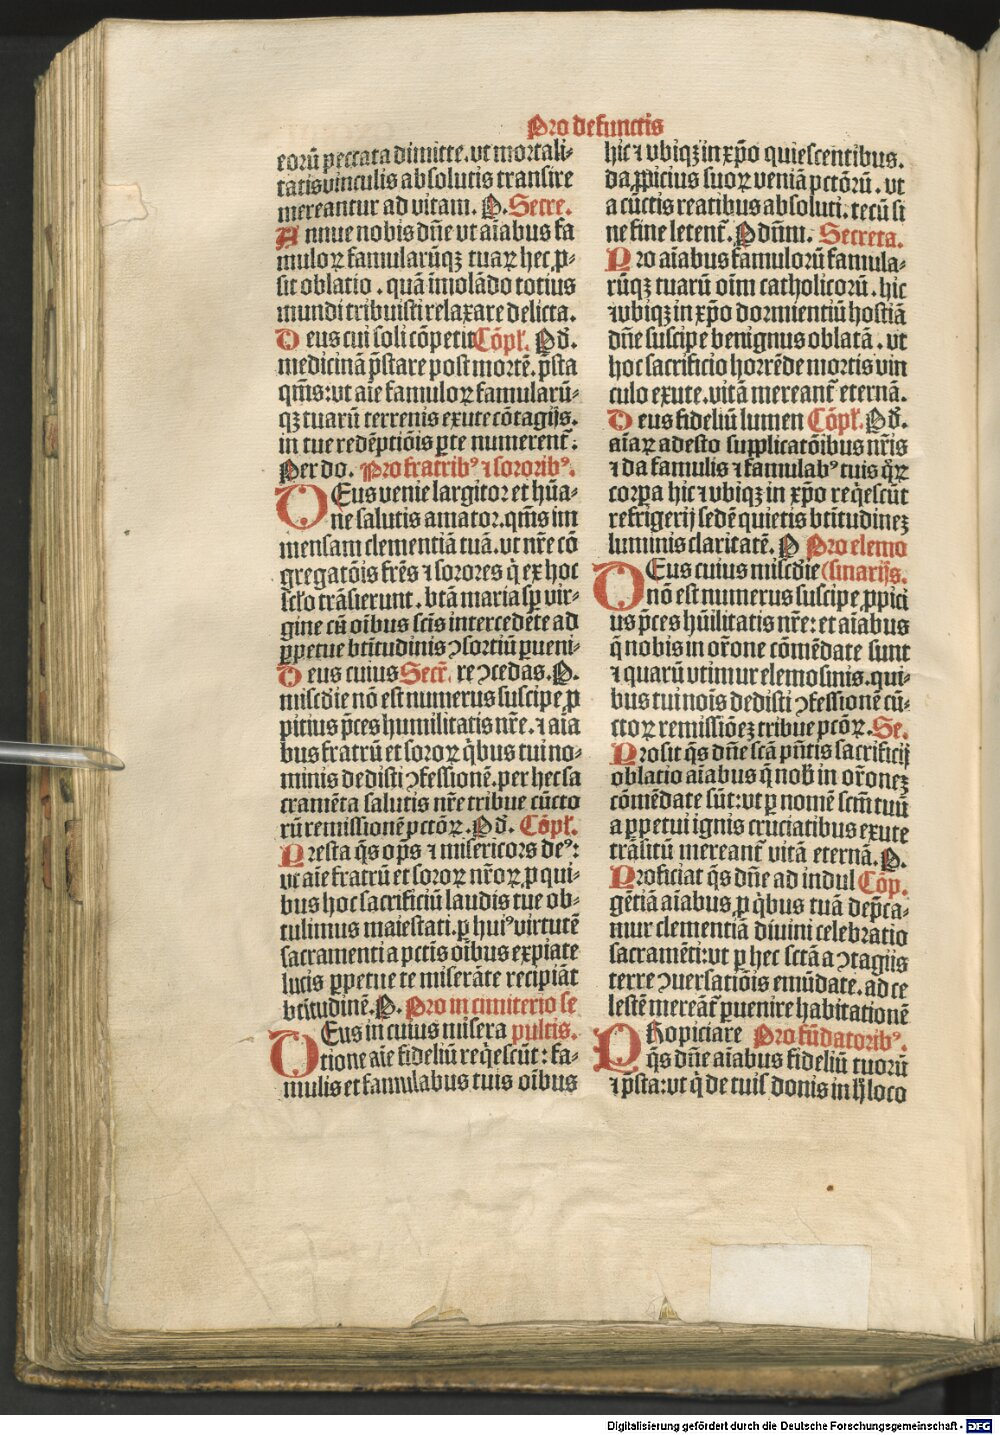 Pro defunctis
eorū peccata dimitte. vt mortali-
tatis vinculis absolutis transire
mereantur ad vitam. P. Secre.
Annue nobis dn̄e vt aīabus fa
muloꝝ famularūqꝫ tuaꝝ hec ꝓ-
sit oblatio. quā īmolādo totius
mundi tribuisti relaxare delicta.
Deus cui soli cōpetit Cōpl̄. P d̄.
medicinā p̄stare post mortē. p̄sta
qm̄s: vt aīe famuloꝝ famularū-
qꝫ tuarū terrenis exute cōtagijs.
in tue redēptiōis ꝑte numerent̄:
Per do. Pro fratribꝰ ⁊ sororibꝰ.
DEus venie largitor et hūa-
ne salutis amator. qm̄s im
mensam clementiā tuā. vt nr̄e cō
gregatōis fr̄es ⁊ sorores q̇ ex hoc
scl̄o trāsierunt. btā maria sꝑ vir-
gine cū oībus scīs intercedēte ad
ꝑpetue btītudinis ꝯsortiū ꝑueni-
Deus cuius Secr̄. re ꝯcedas. P.
misc̄die nō est numerus suscipe ꝓ
pitius p̄ces humilitatis nr̄e. ⁊ aīa
bus fratrū et soroꝝ q̇bus tui no-
minis dedisti ꝯfessionē. per hec sa
cramēta salutis nr̄e tribue cūcto
rū remissionē pctōꝝ. P d̄. Cōpl̄.
Presta q̄s op̄s ⁊ misericors deꝰ:
vt aīe fratrū et soroꝝ nr̄oꝝ, ꝓ qui-
bus hoc sacrificiū laudis tue ob-
tulimus maiestati. ꝑ huiꝰ virtutē
sacramenti a pctīs oībus expiate
lucis ꝑpetue te miserāte recipiāt
btītudinē. P. Pro in cimiterio se
DEus in cuius misera pultis.
tione aīe fideliū req̇escūt: fa-
mulis et famulabus tuis oībus
hic ⁊ vbiqꝫ in xp̄o quiescentibus.
da ꝓpicius suoꝝ veniā pctōrū. vt
a cūctis reatibus absoluti. tecū si
ne fine letent̄. P dn̄m. Secreta.
Pro aīabus famulorū famula-
rūqꝫ tuarū oīm catholicorū. hic
⁊ vbiqꝫ in xp̄o dormientiū hostiā
dn̄e suscipe benignus oblatā. vt
hoc sacrificio horrēde mortis vin
culo exute. vitā mereant̄ eternā.
Deus fideliū lumen Cōpl̄. P d̄.
aīaꝝ adesto supplicatōibus nr̄is
⁊ da famulis ⁊ famulabꝰ tuis q̄ꝝ
corpa hic ⁊ vbiqꝫ in xp̄o req̇escūt
refrigerij sedē quietis btītudinēꝫ
luminis claritatē. P Pro elemo
DEus cuius misc̄die (sinarijs.
nō est numerus suscipe ꝓpici
us p̄ces hūilitatis nr̄e: et aīabus
q̄ nobis in or̄one cōmēdate sunt
⁊ quarū vtimur elemosinis. qui-
bus tui noīs dedisti ꝯfessionē cū-
ctoꝝ remissiōeꝫ tribue pctōꝝ. Se.
Prosit q̄s dn̄e scā pn̄tis sacrificij
oblatio aīabus q̄ nob̄ in or̄oneꝫ
cōmēdate sūt: vt ꝑ nomē scm̄ tuū
a ꝑpetui ignis cruciatibus exute
trāsitū mereant̄ vitā eternā. P.
Proficiat q̄s dn̄e ad indul Cōp.
gētiā aīabus, ꝓ q̇bus tuā dep̄ca-
mur clementiā diuini celebratio
sacramēti: vt ꝑ hec sctā a ꝯtagiis
terre ꝯuersatiōis emūdate. ad ce
lestē mereāt̄ ꝑuenire habitationē
PRopiciare Pro fūdatoribꝰ.
q̄s dn̄e aīabus fideliū tuorū
⁊ p̄sta: vt q̇ de tuis donis in h̄ loco
Digitalisierung gefördert durch die Deutsche Forschungsgemeinschaft - DFG